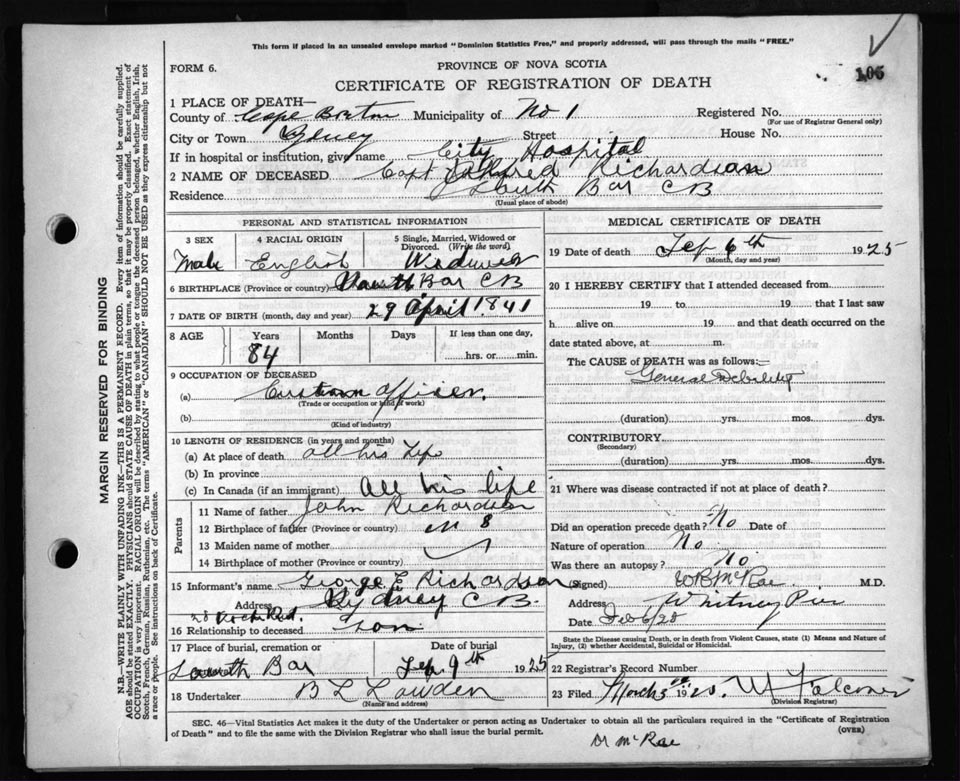 This form if placed in an unsealed envelope marked "Dominion Statistics Free," and properly addressed, will pass through the mails "FREE."
106
FORM 6.
PROVINCE OF NOVA SCOTIA
CERTIFICATE OF REGISTRATION OF DEATH
1 PLACE OF DEATH—
County of Cape Breton Municipality of No 1 Registered No.
(For use of Registrar General only)
City or Town Sydney Street House No.
If in hospital or institution, give name City Hospital
2 NAME OF DECEASED Capt Richardson
Residence South Bar CB
(Usual place of abode)
PERSONAL AND STATISTICAL INFORMATION
3 SEX 4 RACIAL ORIGIN 5 Single, Married, Widowed or Divorced. (Write the word)
Male English Widower
6 BIRTHPLACE (Province or country) South Bar CB
7 DATE OF BIRTH (month, day and year) 29 April 1841
8 AGE Years Months Days If less than one day,
84 hrs. or min.
9 OCCUPATION OF DECEASED
(a) Custom Officer.
(Trade or occupation or kind of work)
(b)
(Kind of industry)
10 LENGTH OF RESIDENCE (in years and months)
(a) At place of death all his life
(b) In province
(c) In Canada (if an immigrant) all his life
Parents
11 Name of father John Richardson
12 Birthplace of father (Province or country)
13 Maiden name of mother
14 Birthplace of mother (Province or country)
15 Informant's name George E Richardson
Address Sydney CB.
16 Relationship to deceased
17 Place of burial, cremation or Date of burial
South Bar Feb 9th 1925
18 Undertaker B L Lowden
(Name and address)
MEDICAL CERTIFICATE OF DEATH
19 Date of death Feb 6th 1925
(Month, day and year)
20 I HEREBY CERTIFY that I attended deceased from
19 to 19 that I last saw
h alive on 19 and that death occurred on the
date stated above, at m.
The CAUSE of DEATH was as follows:—
General Debility
(duration) yrs. mos. dys.
CONTRIBUTORY.
(Secondary)
(duration) yrs. mos. dys.
21 Where was disease contracted if not at place of death?
Did an operation precede death? No Date of
Nature of operation No
Was there an autopsy? No
(Signed) W B McRae M.D.
Address Whitney Pier
Date Feb 6/25
State the Disease causing Death, or in death from Violent Causes, state (1) Means and Nature of Injury, (2) whether Accidental, Suicidal or Homicidal.
22 Registrar's Record Number
23 Filed March 3 1925. M Falconer
(Division Registrar)
SEC. 46—Vital Statistics Act makes it the duty of the Undertaker or person acting as Undertaker to obtain all the particulars required in the "Certificate of Registration
of Death" and to file the same with the Division Registrar who shall issue the burial permit.
(OVER)
Dr McRae
MARGIN RESERVED FOR BINDING
N.B.—WRITE PLAINLY WITH UNFADING INK—THIS IS A PERMANENT RECORD. Every item of information should be carefully supplied.
AGE should be stated EXACTLY. PHYSICIANS should STATE CAUSE OF DEATH in plain terms, so that it may be properly classified. Exact statement of
OCCUPATION is very important. RACIAL ORIGIN will be described by stating to what people or tongue the deceased person belonged, whether English, Irish,
Scotch, French, German, Russian, Ruthenian, etc. The terms "AMERICAN" or "CANADIAN" SHOULD NOT BE USED as they express citizenship but not
a race or people. See instructions on back of Certificate.